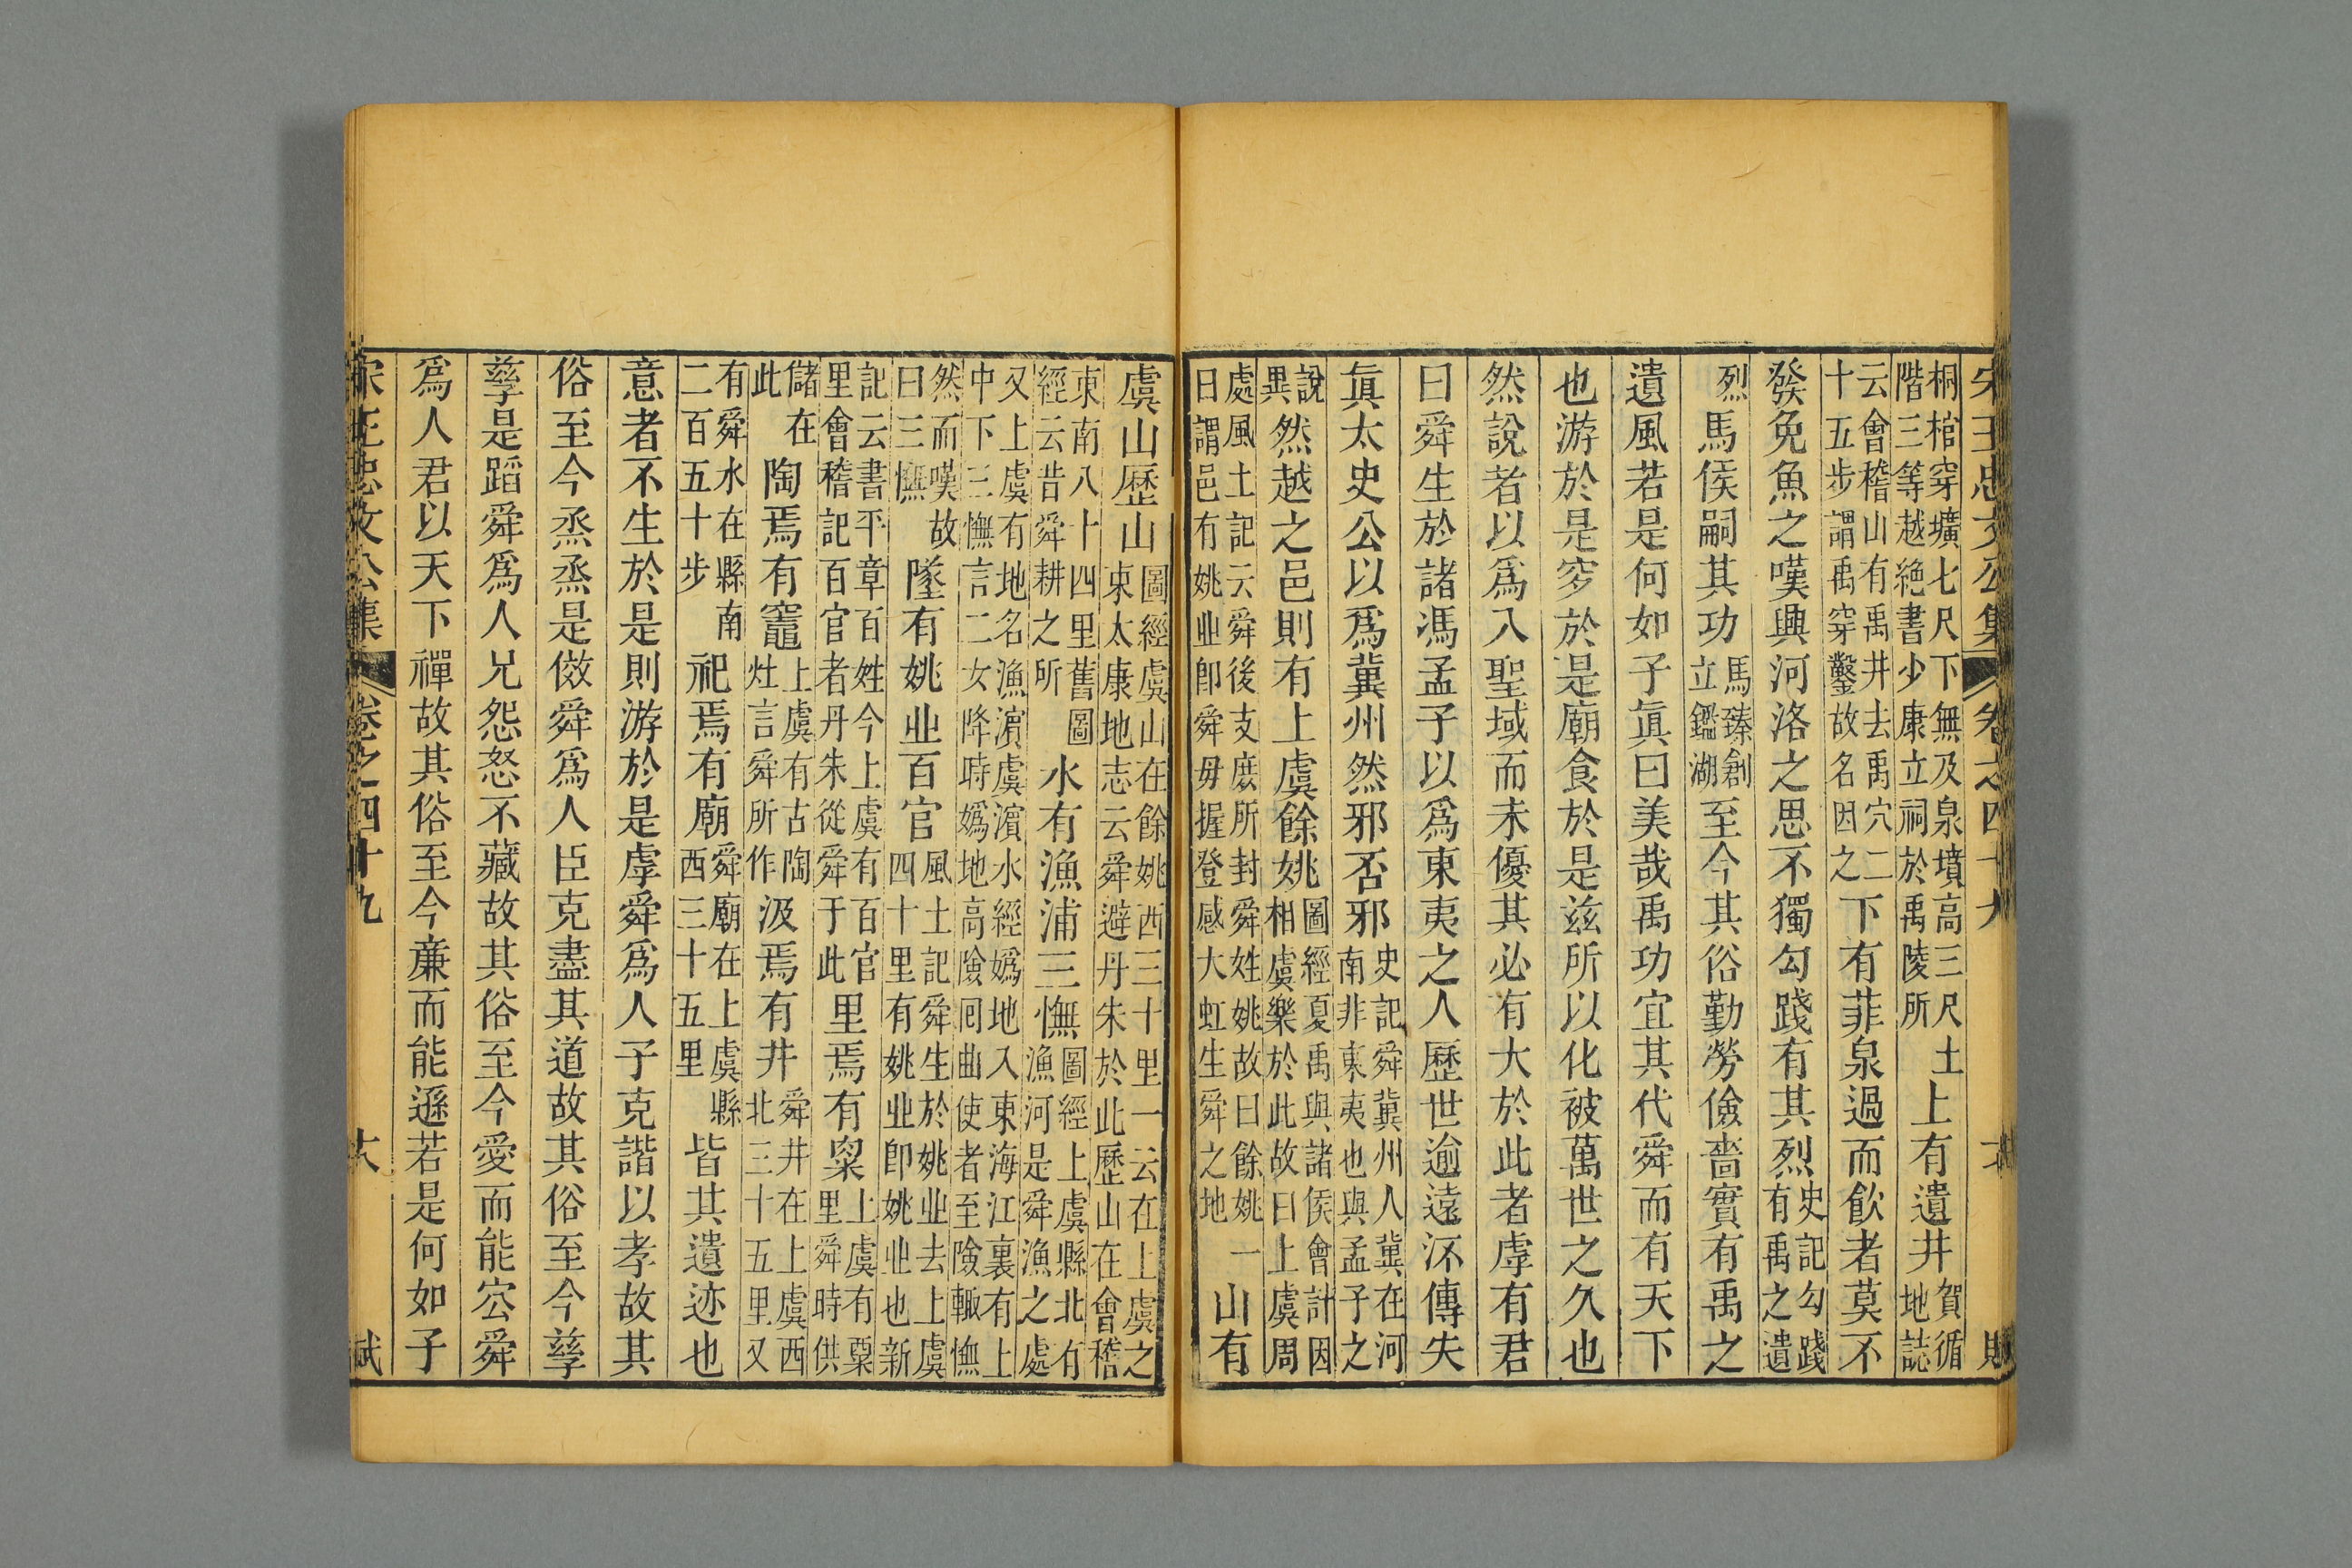 宋王忠文公集 卷之四十九
桐棺穿壙七尺下無及泉墳高三尺土階三等越絶書少康立祠於禹陵所上有遺井賀循地誌
云會稽山有禹井去禹穴二十五步謂禹穿鑿故名因之下有菲泉過而飲者莫不
發免魚之嘆興河洛之思不獨勾踐有其烈史記勾踐有禹之遺
烈馬侯嗣其功馬臻創立鑑湖至今其俗勤勞儉嗇實有禹之
遺風若是何如子眞曰美哉禹功宜其代舜而有天下
也游於是穸於是廟食於是兹所以化被萬世之久也
然說者以爲入聖域而未優其必有大於此者虖有君
曰舜生於諸馮孟子以爲東夷之人歷世逾遠㳅傳失
眞太史公以爲冀州然邪否邪史記舜冀州人冀在河南非東夷也與孟子之
說異然越之邑則有上虞餘姚圖經夏禹與諸侯會計因相虞樂於此故曰上虞周
處風土記云舜後支庶所封舜姓姚故曰餘姚一曰謂邑有姚丠即舜母握登感大虹生舜之地山有
虞山歷山圖經虞山在餘姚西三十里一云在上虞之東太康地志云舜避丹朱於此歷山在會稽
東南八十四里舊圖經云昔舜耕之所水有漁浦三憮圖經上虞縣北有漁河是舜漁之處
又上虞有地名漁濵虞濵水經嬀地入東海江裏有上中下三憮言二女降時嬀地高險囘曲使者至險輙憮
然而嘆故曰三憮墬有姚丠百官風土記舜生於姚丠去上虞四十里有姚丠即姚丠也新
記云書平章百姓今上虞有百官里會稽記百官者丹朱從舜于此里焉有粱上虞有粟里舜時供
儲在此陶焉有竈上虞有古陶灶言舜所作汲焉有井舜井在上虞西北三十五里又
有舜水在縣南二百五十步祀焉有廟舜廟在上虞縣西三十五里皆其遺迹也
意者不生於是則游於是虖舜爲人子克諧以孝故其
俗至今烝烝是傚舜爲人臣克盡其道故其俗至今孳
孳是蹈舜爲人兄怨怒不藏故其俗至今愛而能容舜
爲人君以天下禪故其俗至今亷而能遜若是何如子
宋王忠文公集 卷之四十九